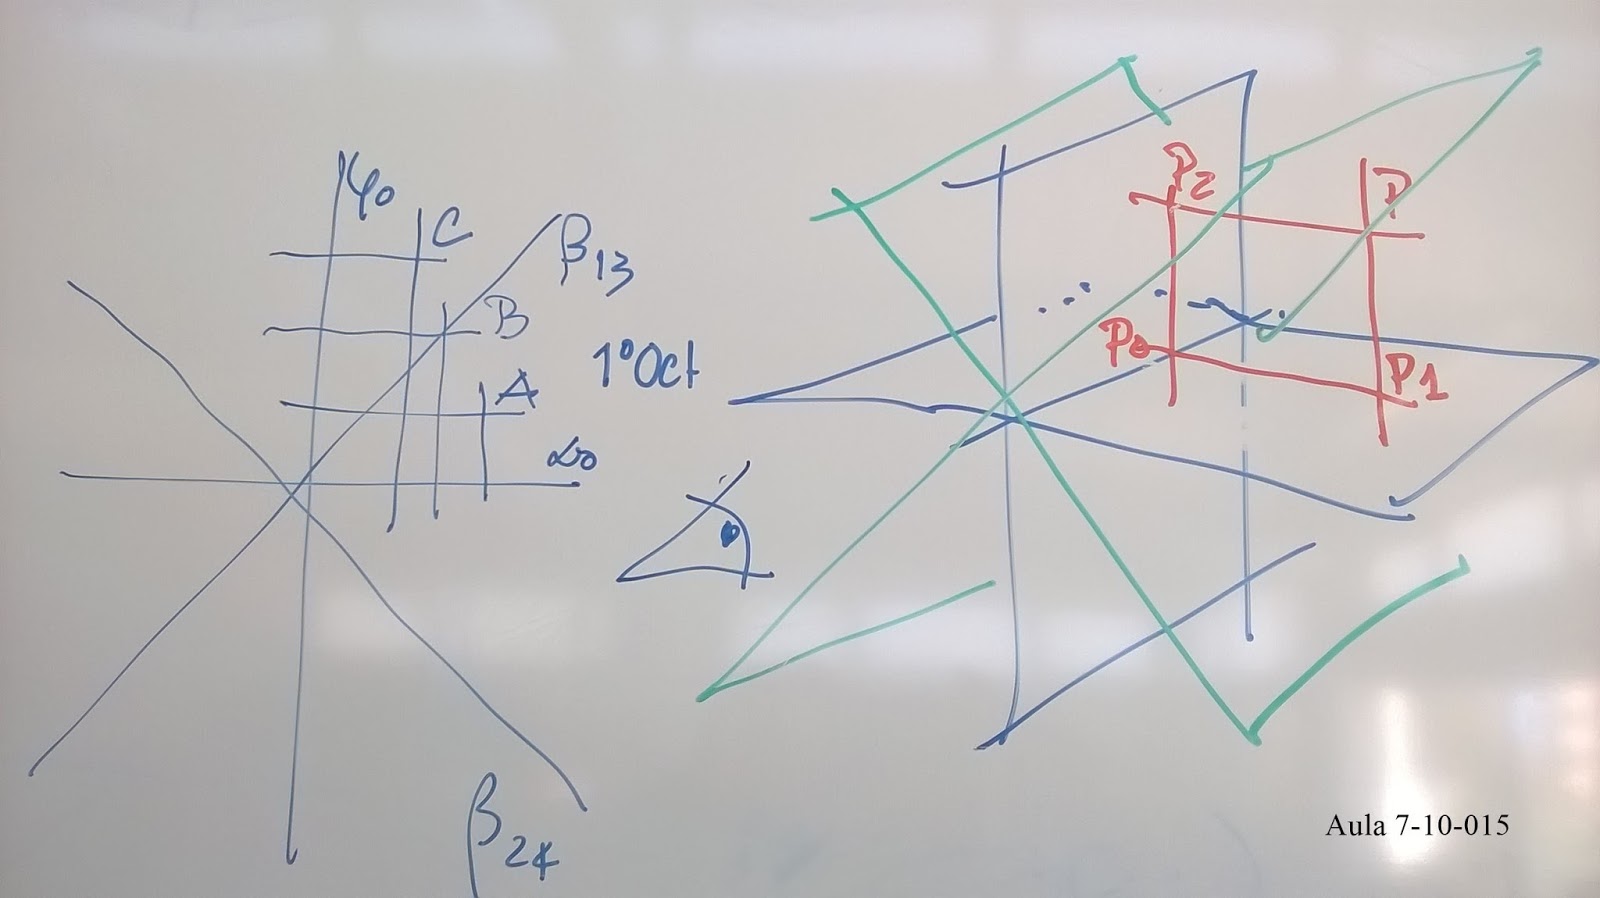 φ0
C
β13
B
1ºOct
A
α0
β24
P2
P
P0
P1
Aula 7-10-015